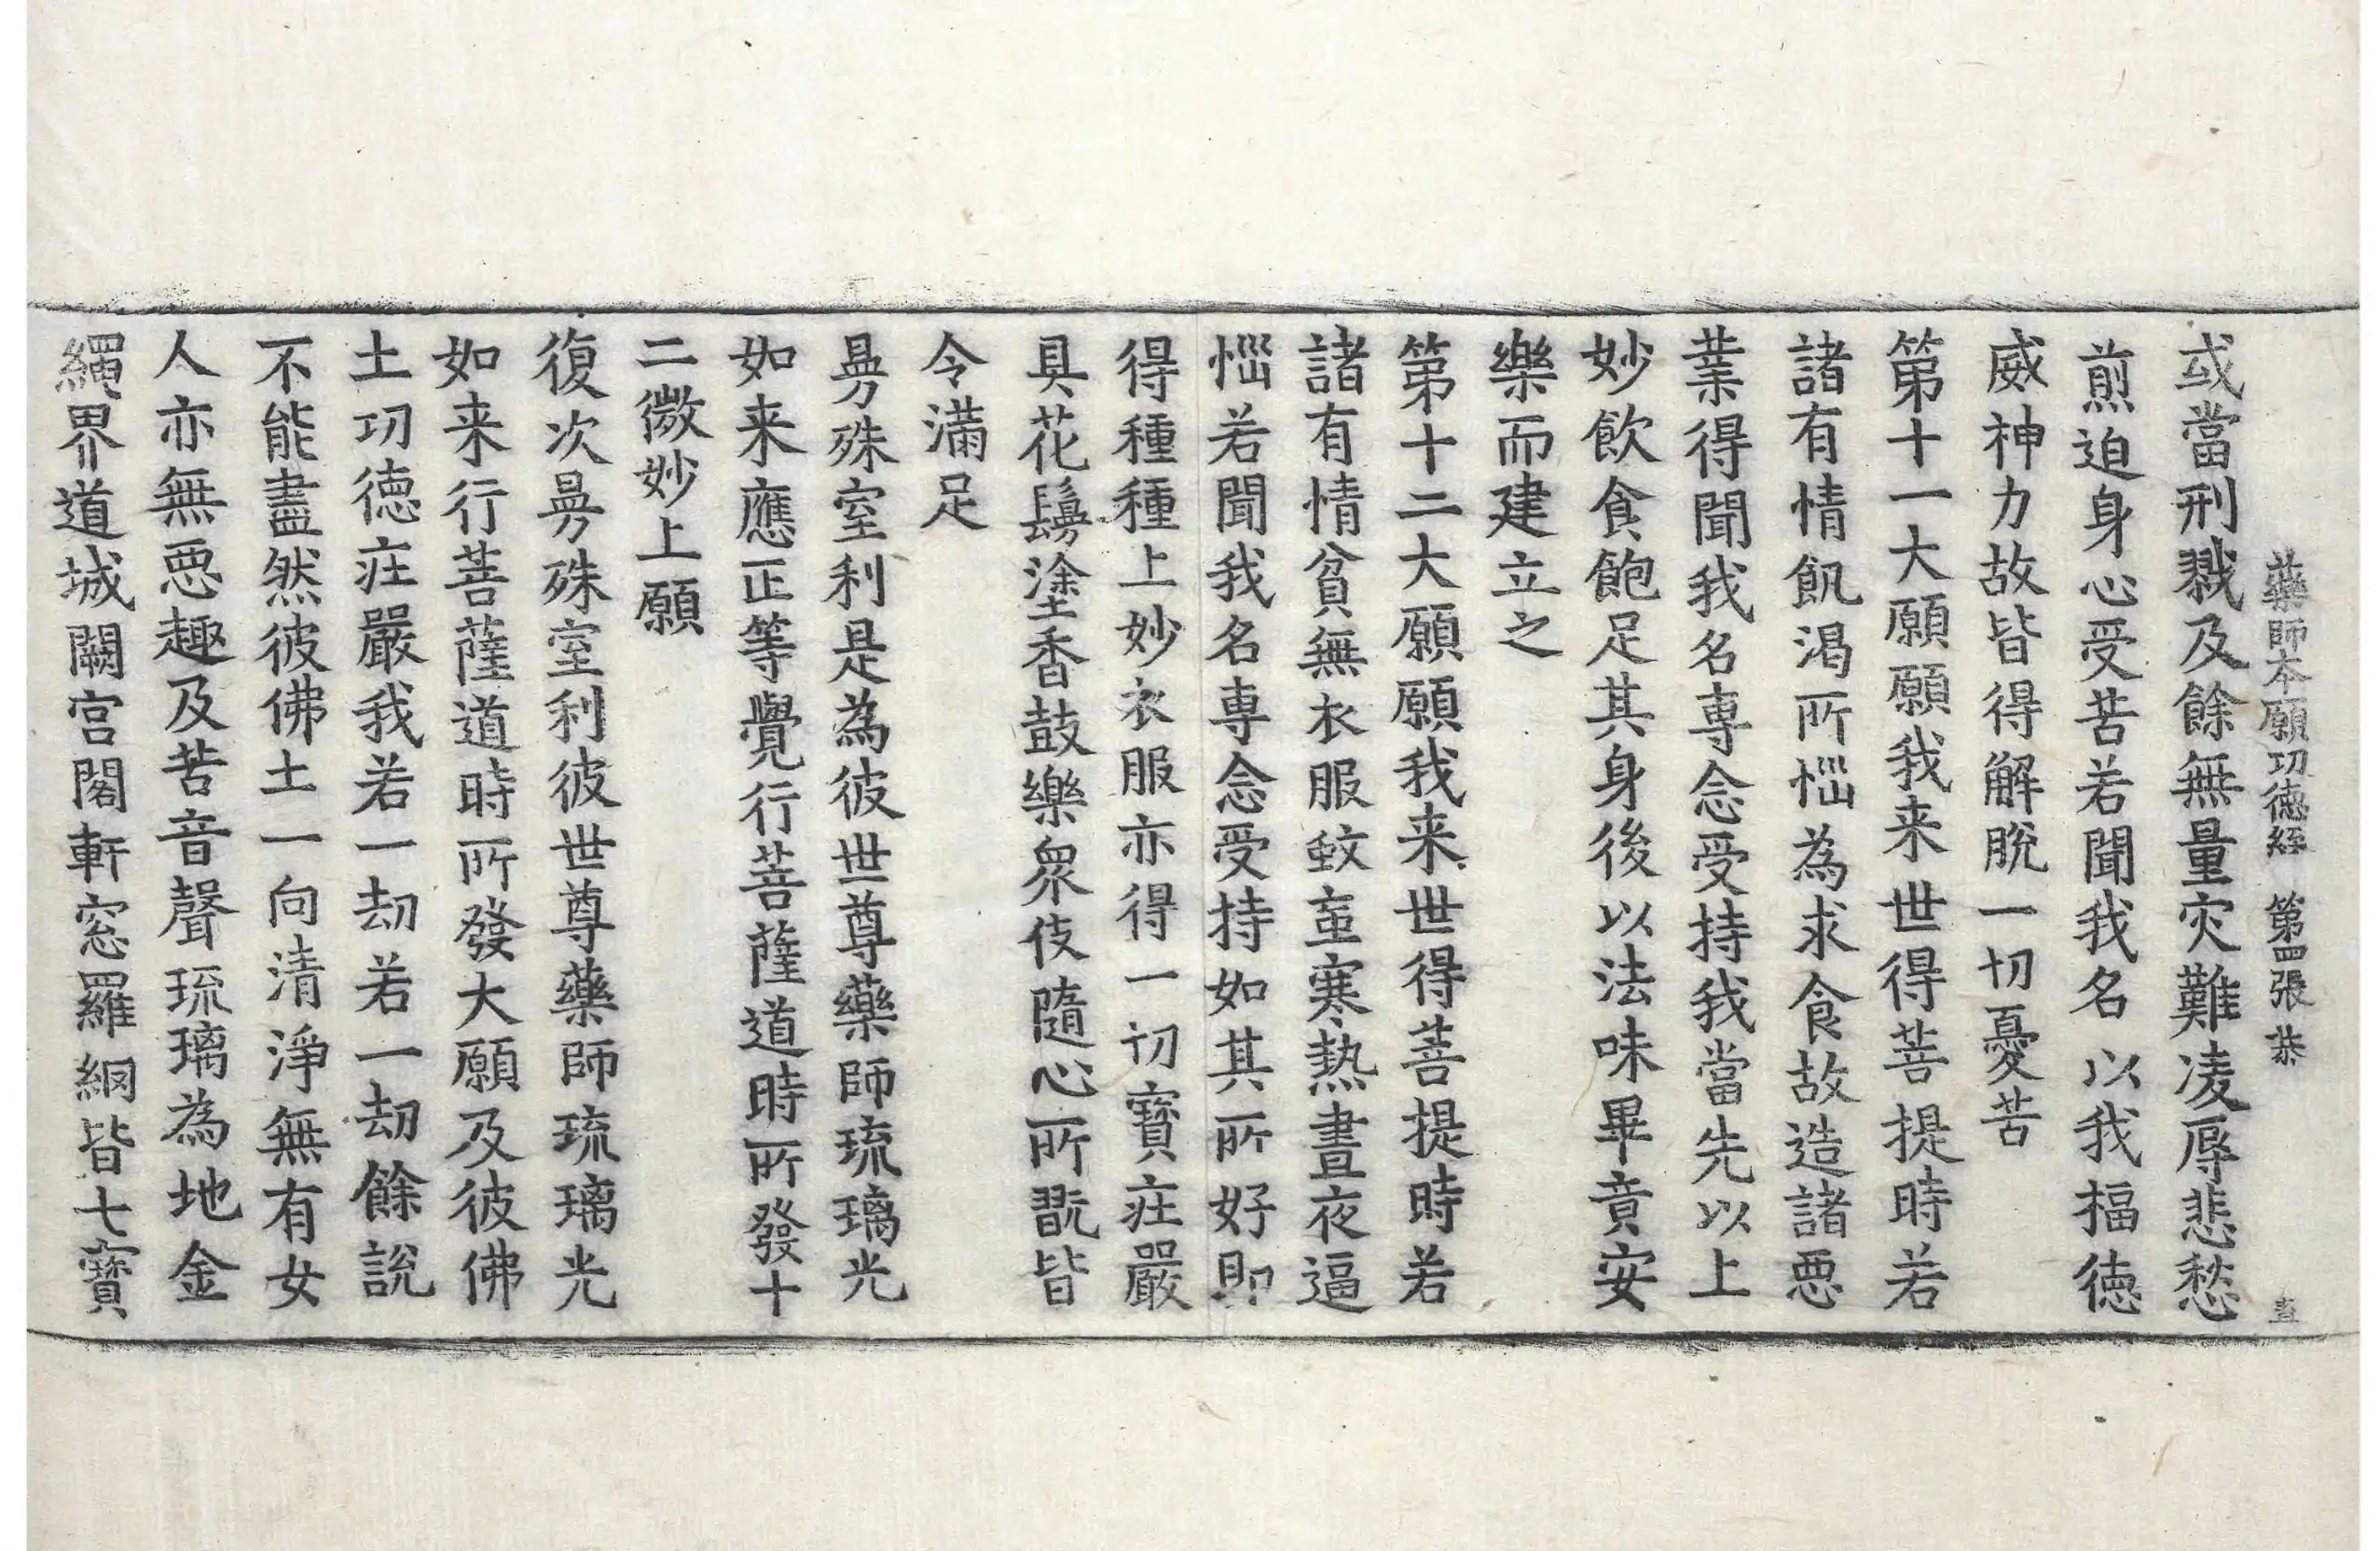 藥師本願功德経 第四張 恭
或當刑戮及餘無量灾難凌辱悲愁
煎迫身心受苦若聞我名以我福德
威神力故皆得解脫一切憂苦
第十一大願願我来世得菩提時若
諸有情飢渴所惱為求食故造諸惡
業得聞我名專念受持我當先以上
妙飲食飽足其身後以法味畢竟安
樂而建立之
第十二大願願我来世得菩提時若
諸有情貧無衣服蚊䖟寒熱晝夜逼
惱若聞我名專念受持如其所好即
得種種上妙衣服亦得一切寶莊嚴
具花鬘塗香鼓樂衆伎隨心所翫皆
令滿足
曼殊室利是為彼世尊藥師琉璃光
如来應正等覺行菩薩道時所發十
二微妙上願
復次曼殊室利彼世尊藥師琉璃光
如来行菩薩道時所發大願及彼佛
土功德莊嚴我若一劫若一劫餘說
不能盡然彼佛土一向清淨無有女
人亦無惡趣及苦音聲琉璃為地金
繩界道城闕宮閣軒窓羅網皆七寶